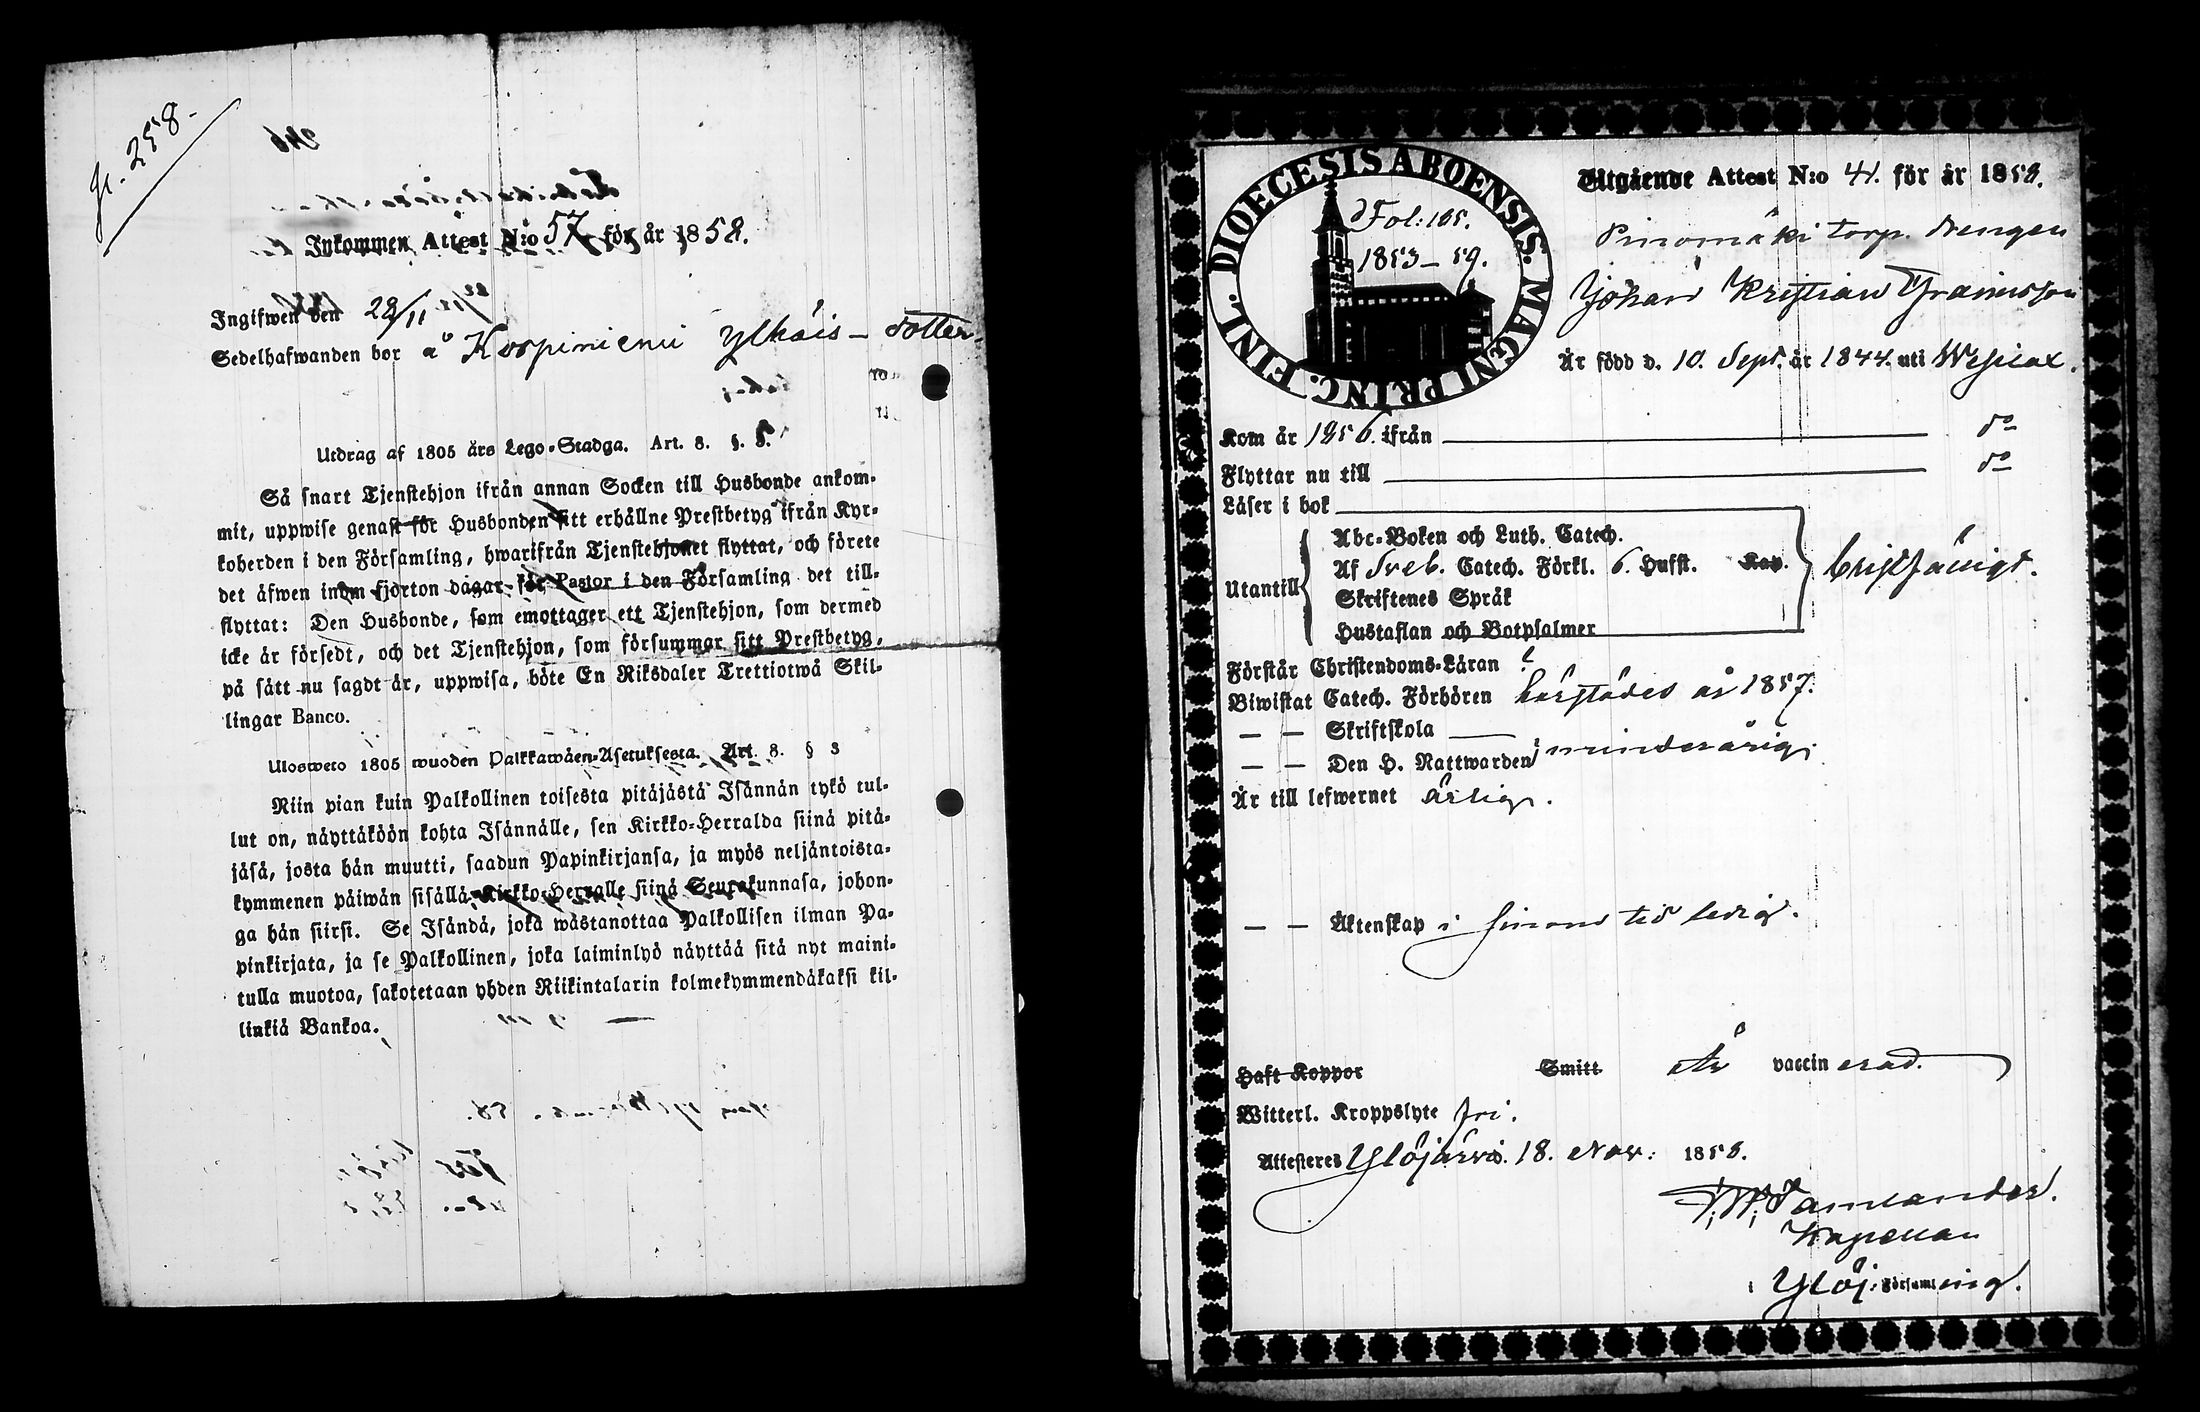 p. 258.
Inkommen Attest N:o 57 för år 1858.
Ingifwen den 28/11
Sedelhafwanden bor å Korpiniemi Ylhäis-
Utdrag af 1805 års Lego-Stadga. Art. 8. §. 3.
Så snart Tjenstehjon ifrån annan Socken till Husbonde ankom-
mit, uppwise genast för Husbonden sitt erhållne Prestbetyg ifrån Kyr-
koherden i den Församling, hwarifrån Tjenstehjonet flyttat, och förete
det äfwen inom fjorton dagar för Pastor i den Församling det till-
flyttat: Den Husbonde, som emottager ett Tjenstehjon, som dermed
icke är försedt, och det Tjenstehjon, som försummar sitt Prestbetyg,
på sätt nu sagdt är, uppwisa, böte En Riksdaler Trettiotwå Skil-
lingar Banco.
Uloswето 1805 wuoden Palkkawäen-Asetuksesta. Art. 8. § 3
Niin pian kuin Palkollinen toisesta pitäjästä Isännän tykö tul-
lut on, näyttäköön kohta Isännälle, sen Kirkko-Herralda siinä pitä-
jäsä, josta hän muutti, saadun Papinkirjansa, ja myös neljäntoista-
kymmenen päiwän sisällä Kirkko-Herralle siinä Seurakunnasa, johon-
ga hän siirsi. Se Isändä, joka wastanottaa Palkollisen ilman Pa-
pinkirjata, ja se Palkollinen, joka laiminlyö näyttää sitä nyt maini-
tulla muotoa, sakotetaan yhden Riikintalarin kolmekymmendäkaksi kil-
linkiä Bankoa.
DIOECESIS ABOENSIS. MAGNI PRINC. FINL.
Fol: 105.
1853-59.
Utgående Attest N:o 41. för år 1858.
Pinomäki torp. Drengen
Johan Kristian Fransson
Är född d. 10. Sept. år 1844. uti Wesilax.
Kom år 1856. ifrån do
Flyttar nu till do
Läser i bok
Utantill
Abc-Boken och Luth. Catech.
Af Sveb. Catech. Förkl. 6. Hufst. Kap.
Skriftenes Språk
Hustaflan och Botpsalmer
bristfälligt.
Förstår Christendoms-Läran
Biwistat Catech. Förhören härstädes år 1857.
— — Skriftskola
— — Den H. Nattwarden minderårig.
Är till lefwernet ärlig.
— — Äktenskap i sinom tid ledig.
Haft Koppor Smitt Är vaccinerad.
Witterl. Kroppslyte fri.
Attesteres Ylöjärvi. 18. Nov: 1858.
Kapellan
i Ylöj. Församling.